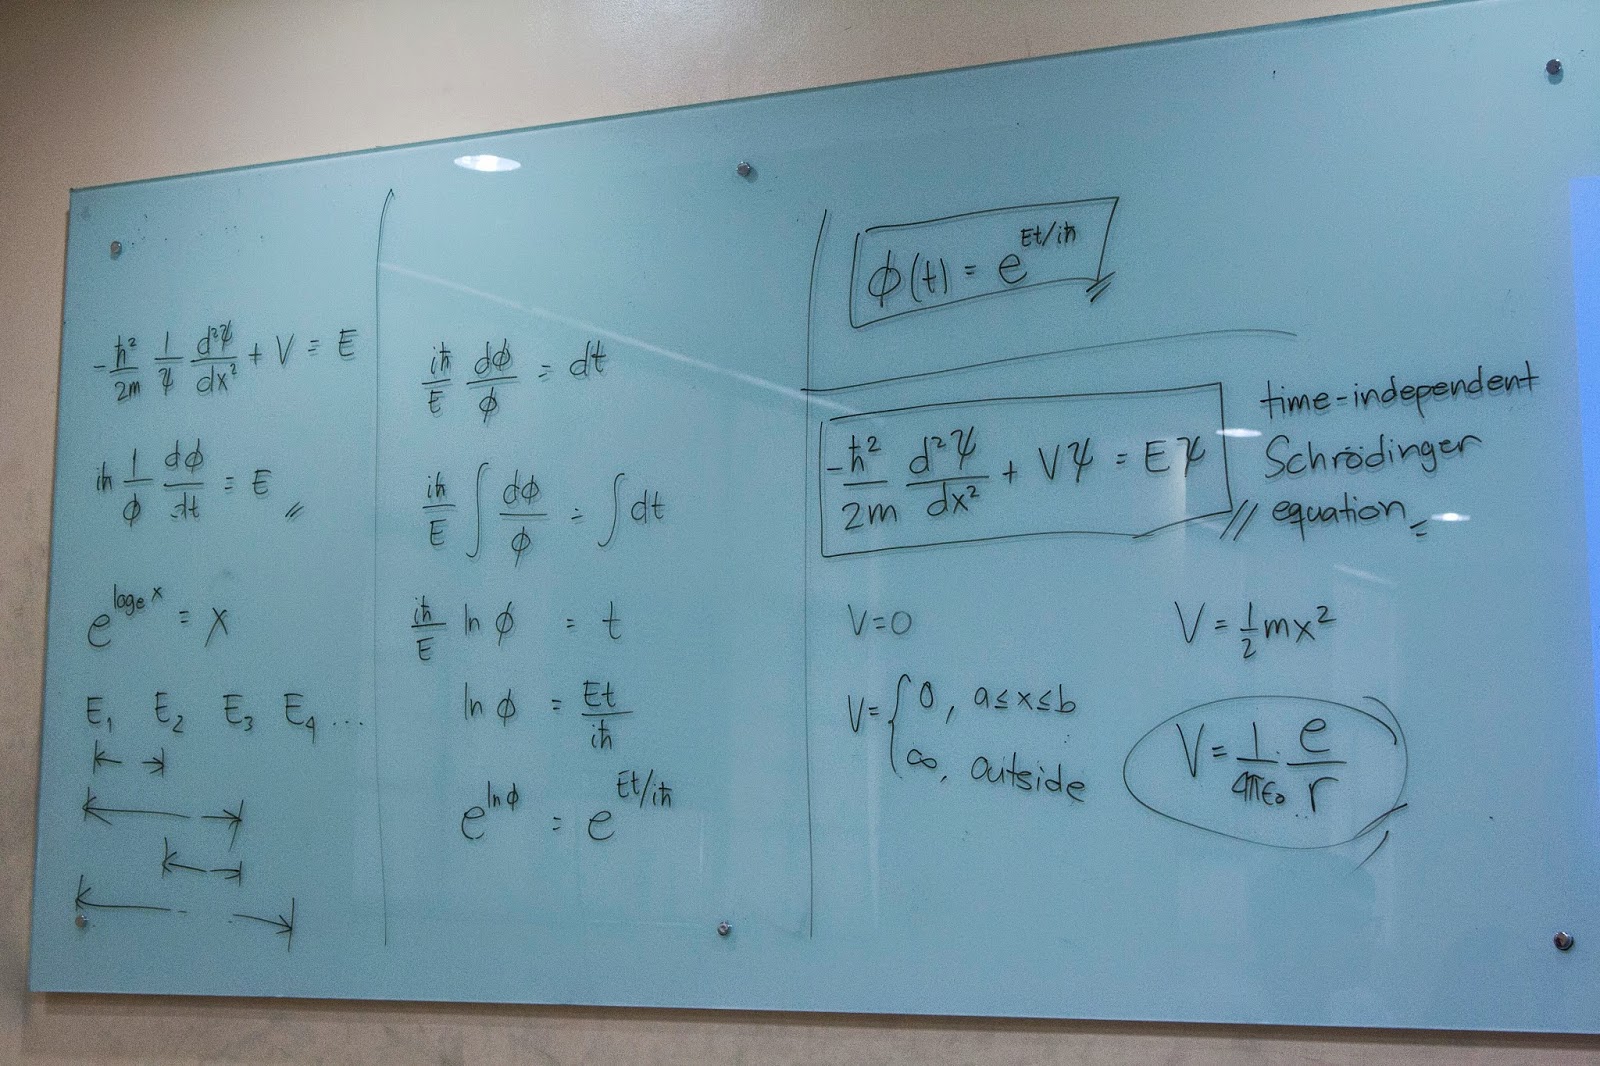 -ħ²/2m 1/ψ d²ψ/dx² + V = E
iħ 1/ϕ dϕ/dt = E
e^logₑx = x
E₁ E₂ E₃ E₄ ...
iħ/E dϕ/ϕ = dt
iħ/E ∫ dϕ/ϕ = ∫ dt
iħ/E ln ϕ = t
ln ϕ = Et/iħ
e^lnϕ = e^Et/iħ
ϕ(t) = e^Et/iħ
-ħ²/2m d²ψ/dx² + Vψ = Eψ
time-independent
Schrödinger
equation
V=0
V= { 0, a≤x≤b
∞, outside
V = 1/2 mx²
V = 1/4πε₀ · e/r